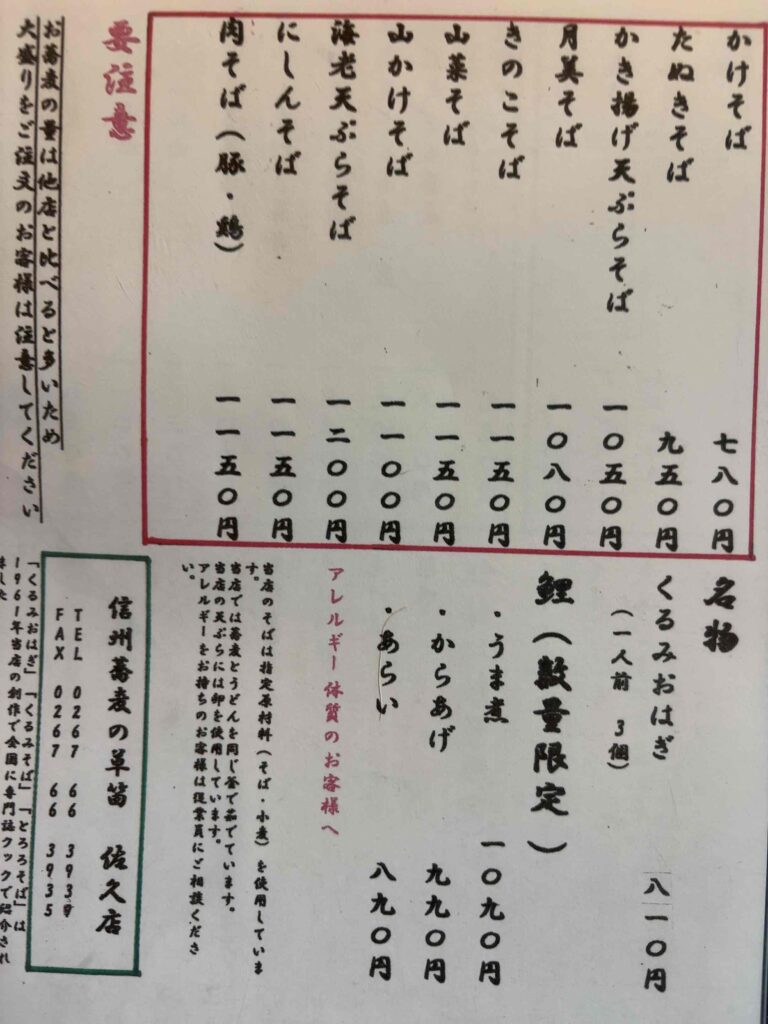 かけそば 七八〇円
たぬきそば 九五〇円
かき揚げ天ぷらそば 一〇五〇円
月美そば 一〇八〇円
きのこそば 一一五〇円
山菜そば 一一五〇円
山かけそば 一一〇〇円
海老天ぷらそば 一二〇〇円
にしんそば 一一五〇円
肉そば(豚・鶏) 一一五〇円
要注意
お蕎麦の量は他店と比べると多いため
大盛りをご注文のお客様は注意してください
名物
くるみおはぎ
(一人前 3個) 八一〇円
鯉(数量限定)
・うま煮 一〇九〇円
・からあげ 九九〇円
・あらい 八九〇円
アレルギー体質のお客様へ
当店のそばは指定原材料(そば・小麦)を使用していま
す。
当店では蕎麦とうどんを同じ釜で茹でています。
当店の天ぷらには卵を使用しています。
アレルギーをお持ちのお客様は従業員にご相談くださ
い。
信州蕎麦の草笛 佐久店
TEL 0267 66 393
FAX 0267 66 3935
「くるみおはぎ」「くるみそば」「とろろそば」は
1961年当店の創作で全国に専門誌クックで紹介され
ました